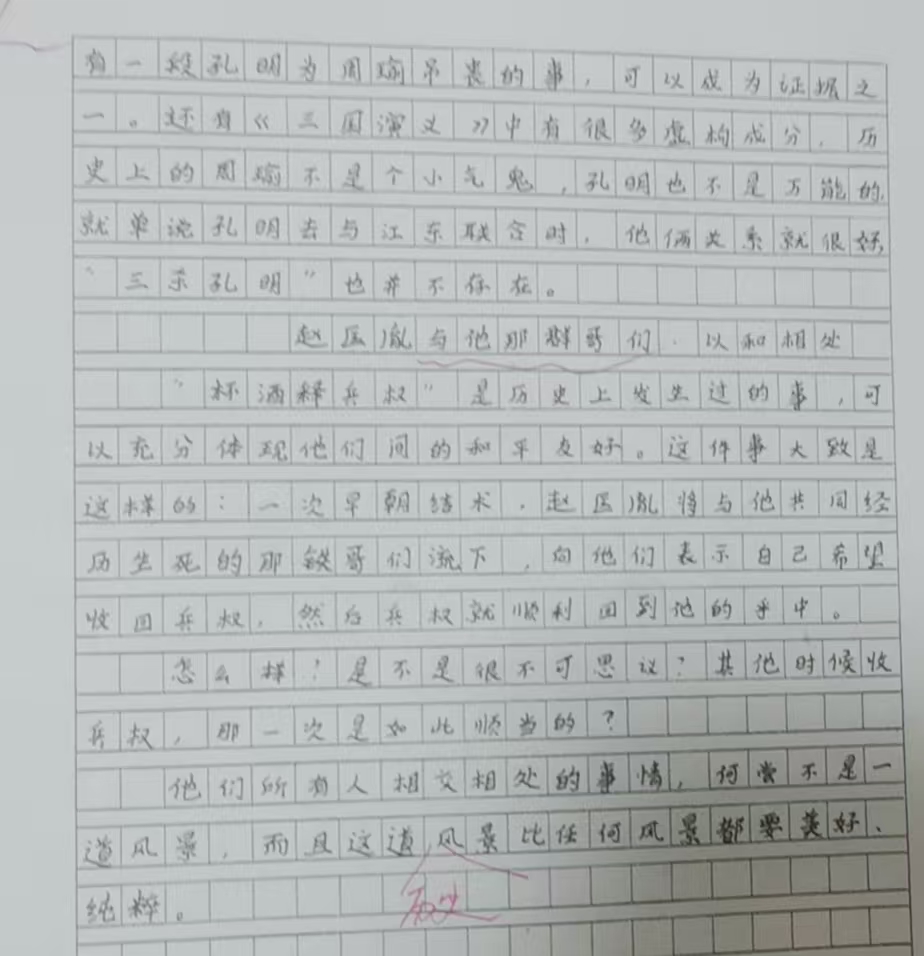 有一段孔明为周瑜吊丧的事，可以成为证据之
一。还有《三国演义》中有很多虚构成分，历
史上的周瑜不是个小气鬼，孔明也不是万能的，
就单说孔明去与江东联合时，他俩关系就很好，
“三杀孔明”也并不存在。
赵匡胤与他那群哥们·以和相处
“杯酒释兵权”是历史上发生过的事，可
以充分体现他们间的和平友好。这件事大致是
这样的：一次早朝结术，赵匡胤将与他共同经
历生死的那铁哥们流下，向他们表示自己希望
收回兵权，然后兵权就顺利回到他的手中。
怎么样？是不是很不可思议？其他时候收
兵权，那一次是如此顺当的？
他们所有人相交相处的事情，何尝不是一
道风景，而且这道风景比任何风景都要美好、
纯粹。
历史